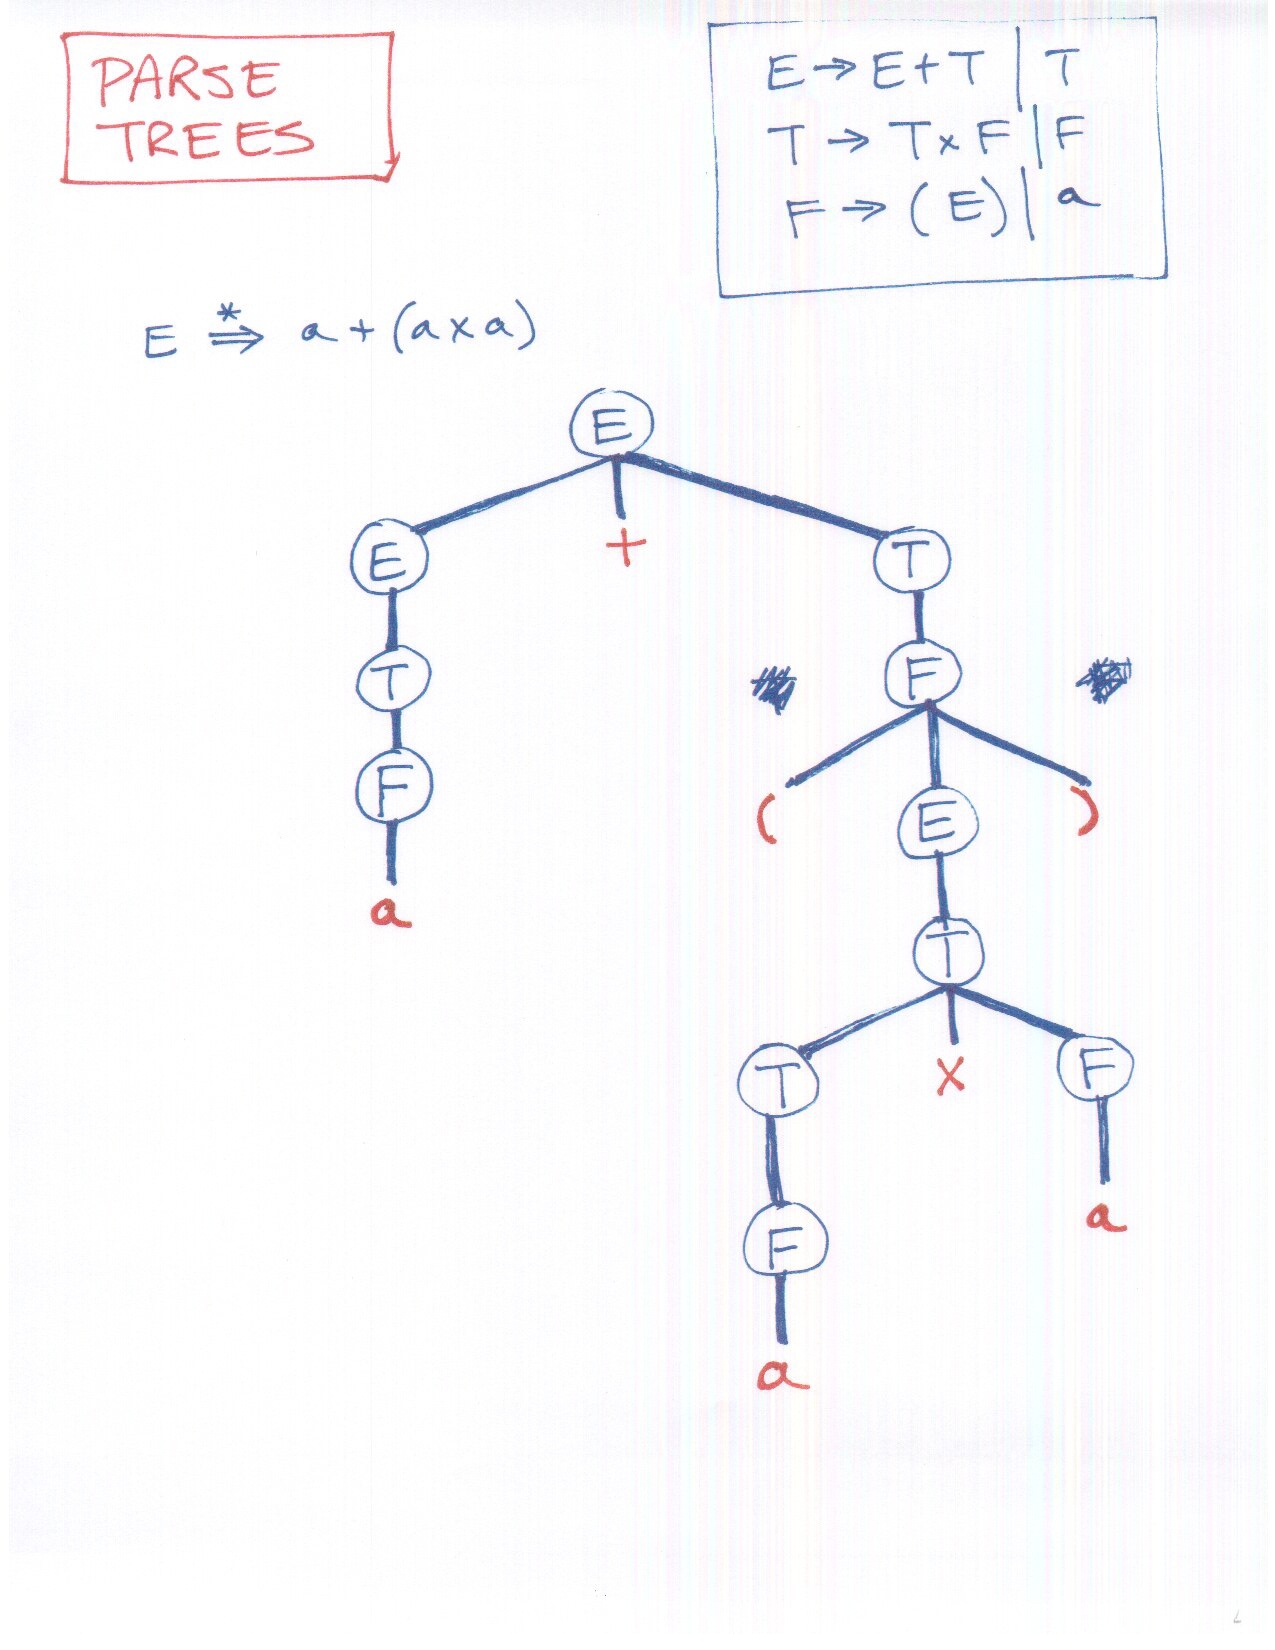 PARSE
TREES
E → E + T | T
T → T x F | F
F → ( E ) | a
E *⇒ a + (a x a)
E
E + T
T F
F ( E )
a T
T x F
F a
a